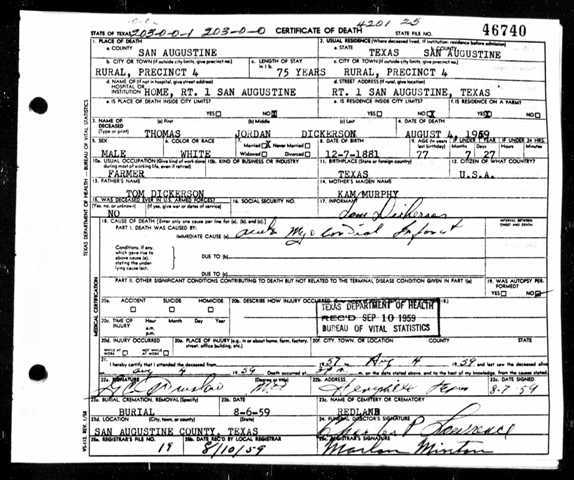 4201 25
STATE OF TEXAS 203-0-0-1 203-0-0 CERTIFICATE OF DEATH STATE FILE NO. 46740
1. PLACE OF DEATH
a. COUNTY
SAN AUGUSTINE
2. USUAL RESIDENCE (Where deceased lived. If institution, residence before admission)
a. STATE b. COUNTY
TEXAS SAN AUGUSTINE
b. CITY OR TOWN (If outside city limits, give precinct no.)
RURAL, PRECINCT 4
c. LENGTH OF STAY
in 1 b.
75 YEARS
c. CITY OR TOWN (If outside city limits, give precinct no.)
RURAL, PRECINCT 4
d. NAME OF (If not in hospital, give street address)
HOSPITAL OR
INSTITUTION HOME, RT. 1 SAN AUGUSTINE
d. STREET ADDRESS (If rural, give location)
RT. 1 SAN AUGUSTINE, TEXAS
e. IS PLACE OF DEATH INSIDE CITY LIMITS?
YES NO X
e. IS RESIDENCE INSIDE CITY LIMITS?
YES NO X
f. IS RESIDENCE ON A FARM?
YES X NO
3. NAME OF
DECEASED
(Type or print)
(a) First (b) Middle (c) Last
THOMAS JORDAN DICKERSON
4. DATE OF DEATH
AUGUST 4, 1959
5. SEX
MALE
6. COLOR OR RACE
WHITE
7. Married X Never Married
Widowed Divorced
8. DATE OF BIRTH
12-7-1881
9. AGE (In years last birthday)
77
IF UNDER 1 YEAR
Months Days
7 27
IF UNDER 24 HRS.
Hours Minutes
10a. USUAL OCCUPATION (Give kind of work done)
FARMER
10b. KIND OF BUSINESS OR INDUSTRY
11. BIRTHPLACE (State or foreign country)
TEXAS
12. CITIZEN OF WHAT COUNTRY?
U.S.A.
13. FATHER'S NAME
TOM DICKERSON
14. MOTHER'S MAIDEN NAME
KAM MURPHY
15. WAS DECEASED EVER IN U.S. ARMED FORCES?
(Yes, no, or unknown) (If yes, give war or dates of service)
NO
16. SOCIAL SECURITY NO.
17. INFORMANT
Tom Dickerson
18. CAUSE OF DEATH [Enter only one cause per line for (a), (b), and (c).]
INTERVAL BETWEEN
ONSET AND DEATH
PART I. DEATH WAS CAUSED BY:
IMMEDIATE CAUSE (a) acute Myocardial Infarct
Conditions, if any,
which gave rise to
above cause (a),
stating the under-
lying cause last.
DUE TO (b)
DUE TO (c)
PART II. OTHER SIGNIFICANT CONDITIONS CONTRIBUTING TO DEATH BUT NOT RELATED TO THE TERMINAL DISEASE CONDITION GIVEN IN PART I(a)
19. WAS AUTOPSY PERFORMED?
YES NO
20a. ACCIDENT SUICIDE HOMICIDE
20b. DESCRIBE HOW INJURY OCCURRED.
20c. TIME OF
INJURY
Hour Month Day Year
a.m.
p.m.
TEXAS DEPARTMENT OF HEALTH
REC'D SEP 10 1959
BUREAU OF VITAL STATISTICS
20d. INJURY OCCURRED
20e. PLACE OF INJURY (e.g. in or about home, farm, factory, street, office building, etc.)
20f. CITY, TOWN, OR LOCATION COUNTY STATE
21. I hereby certify that I attended the deceased from
57 Aug 4 1959
Aug 4 1959
22a. SIGNATURE (Degree or title)
22b. ADDRESS
Hemphill Texas
22c. DATE SIGNED
8-7-59
23a. BURIAL, CREMATION, REMOVAL (Specify)
BURIAL
23b. DATE
8-6-59
23c. NAME OF CEMETERY OR CREMATORY
REDLAND
23d. LOCATION (City, town, or county) (State)
SAN AUGUSTINE COUNTY, TEXAS
24. FUNERAL DIRECTOR'S SIGNATURE
Charles P Lawrence
25a. REGISTRAR'S FILE NO.
19
25b. DATE REC'D BY LOCAL REGISTRAR
8/10/59
25c. REGISTRAR'S SIGNATURE
Marlon Minton
TEXAS DEPARTMENT OF HEALTH — BUREAU OF VITAL STATISTICS
MEDICAL CERTIFICATION